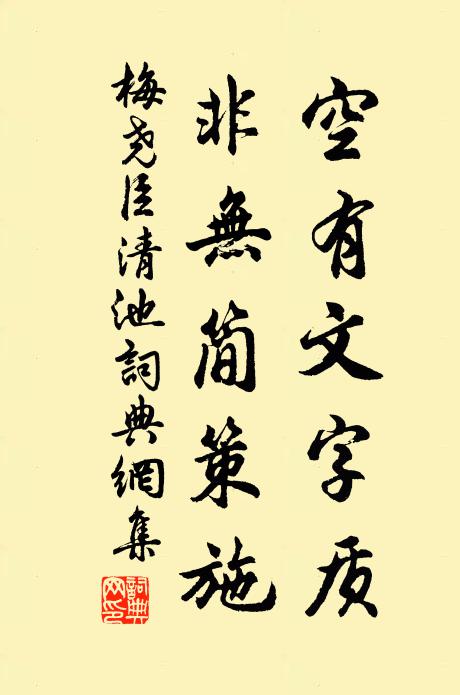 空有文字质
非無简策施
梅尧臣清池詞典網集
詞典网印